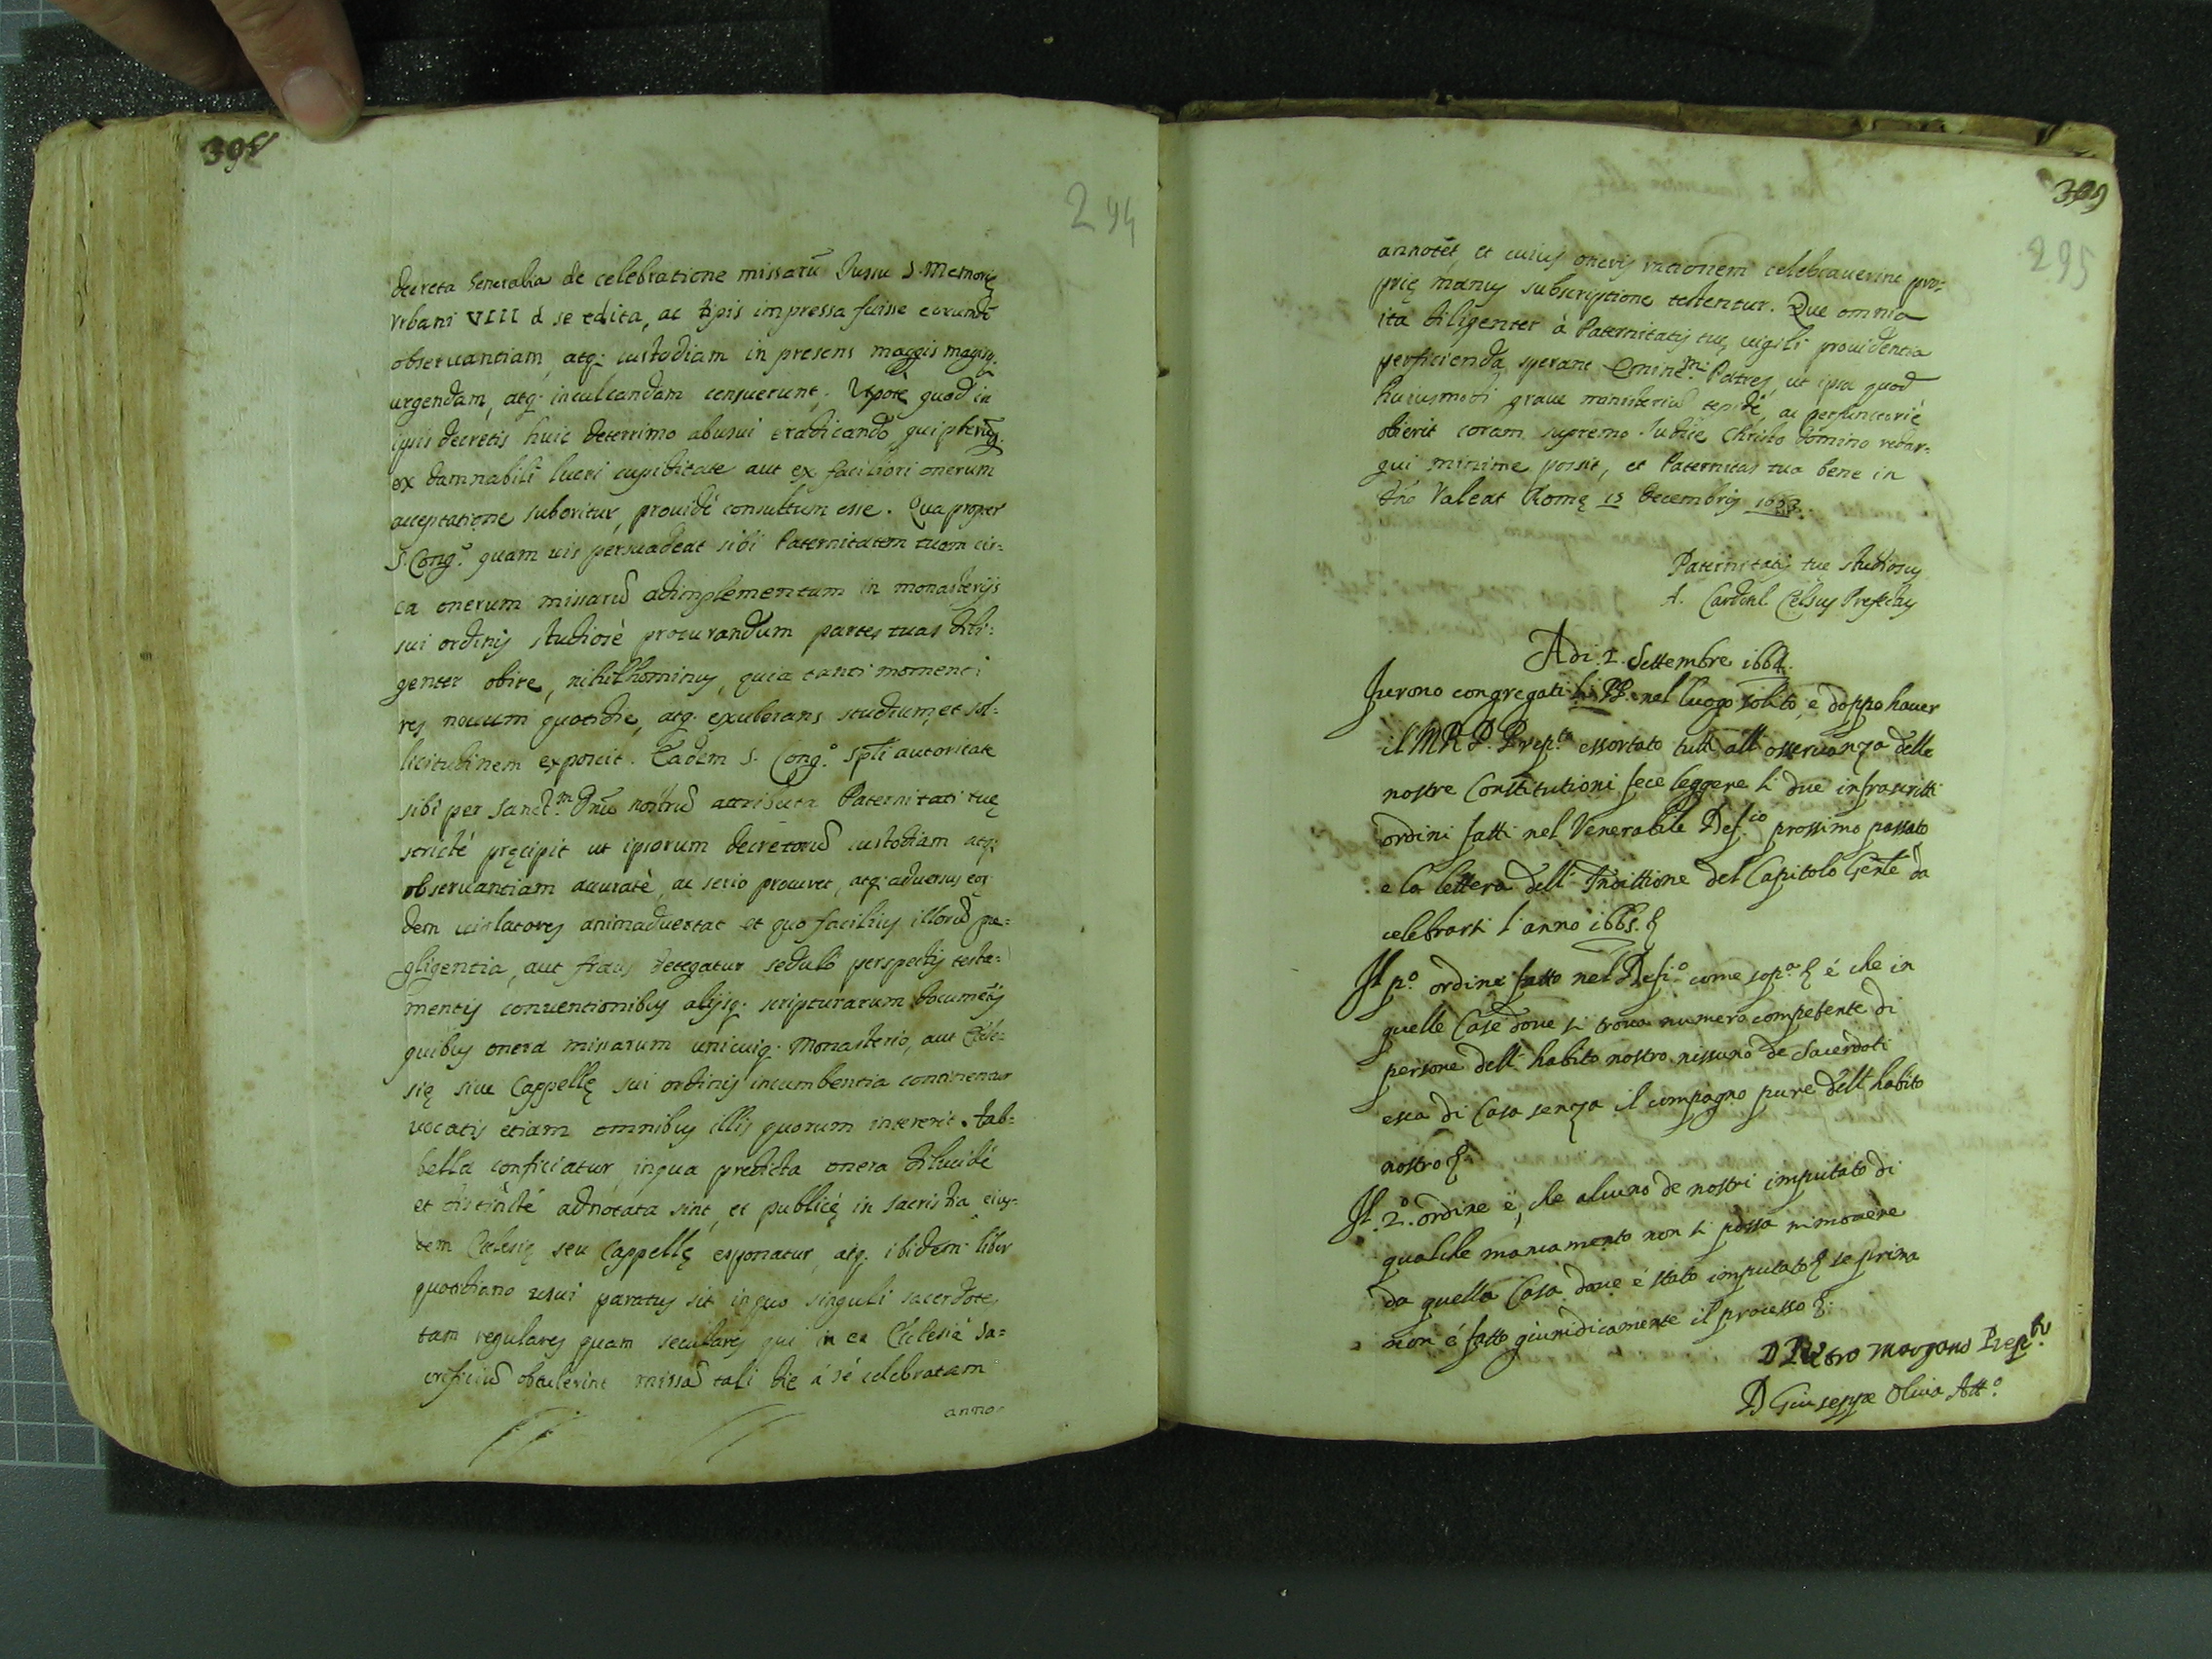 398
294
decreta Generalia de celebratione missarū Iussu S. Memorię
Vrbani VIII à se edita, ac tipis impressa fuisse eorundē
obseruantiam, atq; custodiam in presens maggis magisq.
urgendam, atq. inculcandam censuerunt. Vtpotè quod in
ipsis decretis huic deterrimo abusui eradicando, qui plerūq.
ex damnabili lucri cupiditate aut ex faciliori onerum
acceptatione suboritur, prouidè consultum esse. Quapropter
S. Cong.º quam uis persuadeat sibi Paternitatem tuam cir=
ca onerum missarū adimplementum in monasterijs
sui ordinis studiosè procurandum partes tuas dili=
genter obire, nihilhominus, quia tanti momenti
res nouum quotidie, atq. exuberans studium, et sol=
licitudinem exposcit. Eadem S. Cong.º spłi autoritate
sibi per Sanct.m Dnū nostrū attributa Paternitati tuę
strictè pręcipit ut ipsorum decretorū custodiam atq;
obseruantiam accuratè, ac serio procuret, atq. aduersus eos
dem uiolatores animaduertat et quo facilius illorū ne=
gligentia, aut fraus detegatur sedulò perspectis testa=
mentis conuentionibus alijsq. scripturarum documētis
quibus onera missarum unicuiq. Monasterio, aut Eccle=
się siue Cappellę sui ordinis incumbentia continentur
uocatis etiam omnibus illis quorum intererit. tab=
bella conficiatur, inqua predicta onera dilucidè
et distinctè adnotata sint, et publicè in sacristia eius=
dem Ecclesię seu Cappellę exponatur, atq. ibidem liber
quotidiano usui paratus sit inquo singuli sacerdotes
tam regulares quam seculares qui in ea Ecclesia sa=
crificiū obtulerint missā tali die à sé celebratam
anno
399
295
annotēt, et cuius oneris rationem celebrauerint pro=
prię manus subscriptione testentur. Que omnia
ita diligenter à Paternitatis tuę uigili prouidentia
perficienda sperant Eminē.mi Patres, ut ipsa quod
huiusmodi graue ministeriū tepidè, ac perfunctoriè
obierit coram supremo Iudice Christo domino redar=
gui minime possit, et Paternitas tua bene in
Dno Valeat Romę 15 Decembris 1653.
Paternitatis tue studiosus
A. Cardinl Celsus Prefectus
Adi 1. Settembre 1664.
Furono congregati li PP. nel luogo solito, e doppo hauer
il M R P. Prep.to essortato tutti all' osseruanza delle
nostre Constitutioni fece leggere li due infrascritti
ordini fatti nel Venerabile Def.io prossimo passato
e la lettera dell' Indittione del Capitolo Genle da
celebrarsi l'anno 1665.
Il p.º ordine fatto nel Defi.º come sop.a é che in
quelle Case doue si troua numero competente di
persone dell' habito nostro nissuno de Sacerdoti
esca di Casa senza il compagno pure dell' habito
nostro
Il 2.º ordine è, che alcuno de nostri imputato di
qualche mancamento non si possa rimouere
da quella Casa doue é stato imputato se prima
non é fatto giuridicamente il processo
D Pietro Morgano Prep.to
D Giuseppe Oliua Att.º